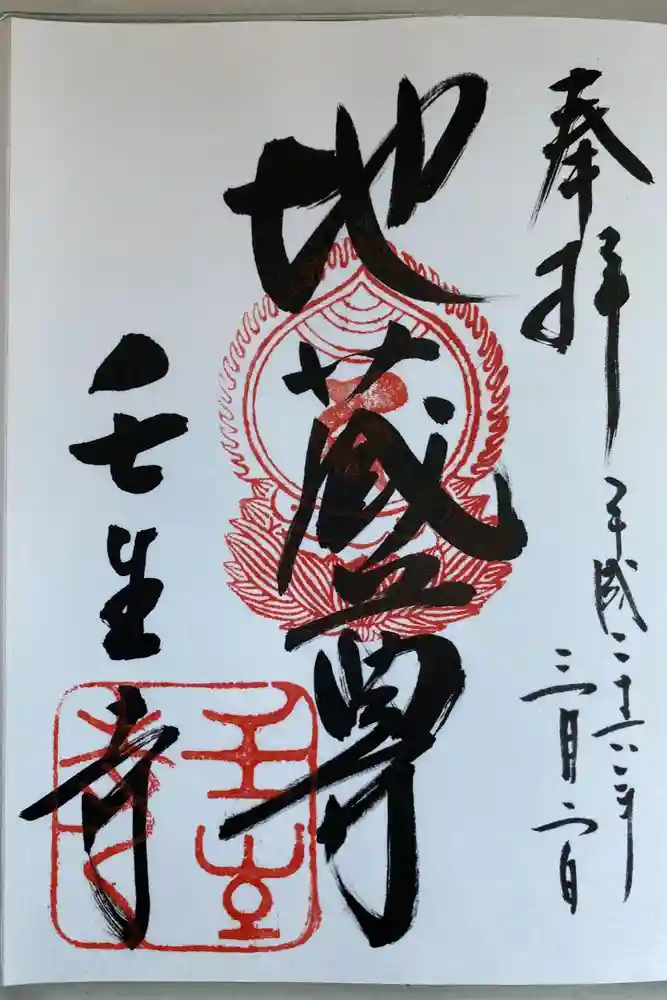 奉拝
平成二十六年
三月二日
地蔵尊
壬生寺
壬生寺